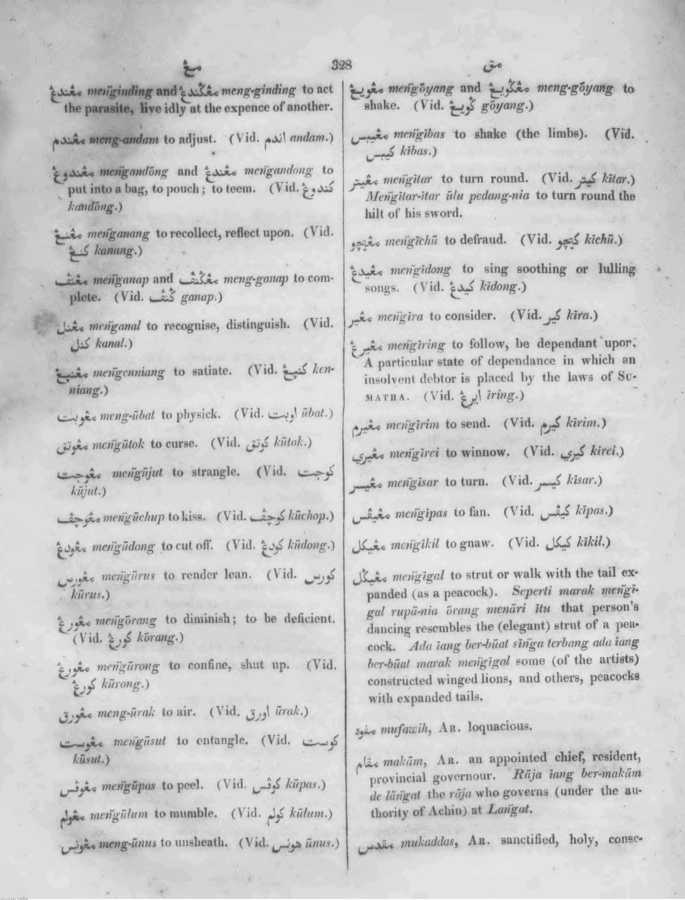 مغ 328 مق
مڠندڠ men̄ginding and مڠڬندڠ meng-ginding to act
the parasite, live idly at the expence of another.
مڠندم meng-andam to adjust. (Vid. اندم andam.)
مڠندوڠ men̄gandōng and مڠندڠ men̄gandong to
put into a bag, to pouch; to teem. (Vid. كندوڠ
kandōng.)
مڠنڠ men̄ganang to recollect, reflect upon. (Vid.
كنڠ kanang.)
مڠنڤ men̄ganap and مڠڬنڤ meng-ganap to com-
plete. (Vid. ڬنڤ ganap.)
مڠنل men̄ganal to recognise, distinguish. (Vid.
كنل kanal.)
مڠنيڠ men̄genniang to satiate. (Vid. كنيڠ ken-
niang.)
مڠوبت meng-ūbat to physick. (Vid. اوبت ūbat.)
مڠوتق men̄gūtok to curse. (Vid. كوتق kūtok.)
مڠوجت men̄gūjut to strangle. (Vid. كوجت
kūjut.)
مڠوچڤ men̄gūchup to kiss. (Vid. كوچڤ kūchop.)
مڠودڠ men̄gūdong to cut off. (Vid. كودڠ kūdong.)
مڠورس men̄gūrus to render lean. (Vid. كورس
kūrus.)
مڠورڠ men̄gōrang to diminish; to be deficient.
(Vid. كورڠ kōrang.)
مڠورڠ men̄gūrong to confine, shut up. (Vid.
كورڠ kūrong.)
مڠورق meng-ūrak to air. (Vid. اورق ūrak.)
مڠوست men̄gūsut to entangle. (Vid. كوست
kūsut.)
مڠوڤس men̄gūpas to peel. (Vid. كوڤس kūpas.)
مڠولم men̄gūlum to mumble. (Vid. كولم kūlum.)
مڠونس meng-ūnus to unsheath. (Vid. هونس ūnus.)
مڠويڠ men̄gōyang and مڠڬويڠ meng-gōyang to
shake. (Vid. ڬويڠ gōyang.)
مڠيبس men̄gības to shake (the limbs). (Vid.
كيبس kības.)
مڠيتر men̄gītar to turn round. (Vid. كيتر kītar.)
Men̄gītar-ītar ūlu pedang-nia to turn round the
hilt of his sword.
مڠيچو men̄gīchū to defraud. (Vid. كيچو kīchū.)
مڠيدڠ men̄gīdong to sing soothing or lulling
songs. (Vid. كيدڠ kīdong.)
مڠير men̄gīra to consider. (Vid. كير kīra.)
مڠيرڠ men̄gīring to follow, be dependant upon.
A particular state of dependance in which an
insolvent debtor is placed by the laws of Su-
matra. (Vid. ايرڠ īring.)
مڠيرم men̄gīrim to send. (Vid. كيرم kīrim.)
مڠيري men̄gīrei to winnow. (Vid. كيري kīrei.)
مڠيسر men̄gīsar to turn. (Vid. كيسر kīsar.)
مڠيڤس men̄gīpas to fan. (Vid. كيڤس kīpas.)
مڠيكل men̄gīkil to gnaw. (Vid. كيكل kīkil.)
مڠيڬل men̄gīgal to strut or walk with the tail ex-
panded (as a peacock). Seperti marak men̄gī-
gal rupā-nia ōrang menāri ītu that person's
dancing resembles the (elegant) strut of a pea-
cock. Ada īang ber-būat sīn̄ga terbang ada īang
ber-būat marak men̄gīgal some (of the artists)
constructed winged lions, and others, peacocks
with expanded tails.
مفوه mufawih, Ar. loquacious.
مقام makām, Ar. an appointed chief, resident,
provincial governour. Rāja īang ber-makām
de lān̄gat the rāja who governs (under the au-
thority of Achin) at Lan̄gat.
مقدس mukaddas, Ar. sanctified, holy, conse-